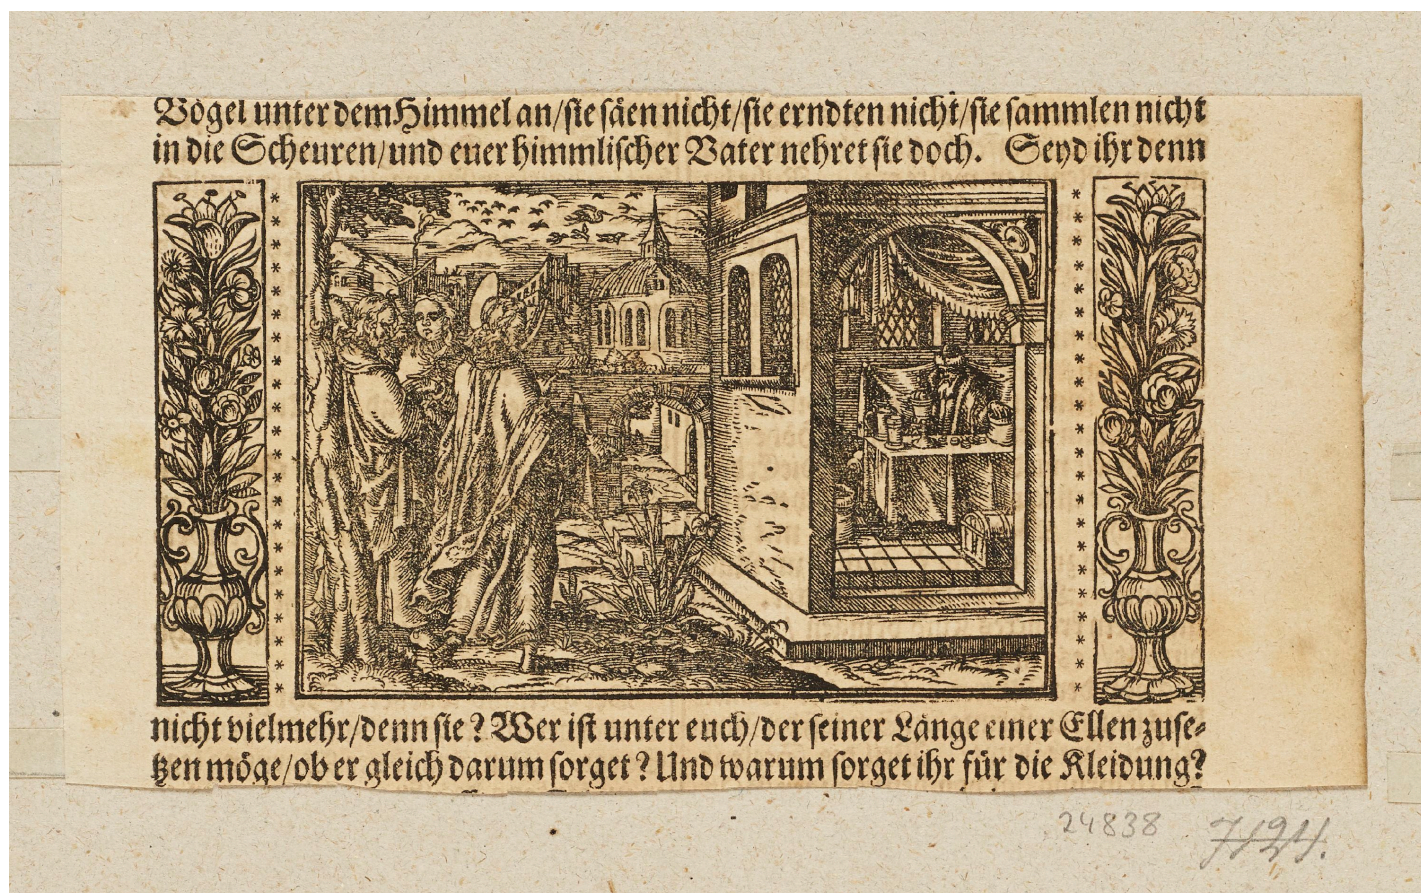 Vögel unter dem Himmel an/sie säen nicht/sie erndten nicht/sie sammlen nicht
in die Scheuren/und euer himmlischer Vater nehret sie doch. Seyd ihr denn
nicht vielmehr/denn sie? Wer ist unter euch/der seiner Länge einer Ellen zuse-
tzen möge/ob er gleich darum sorget? Und warum sorget ihr für die Kleidung?
24838 7124.